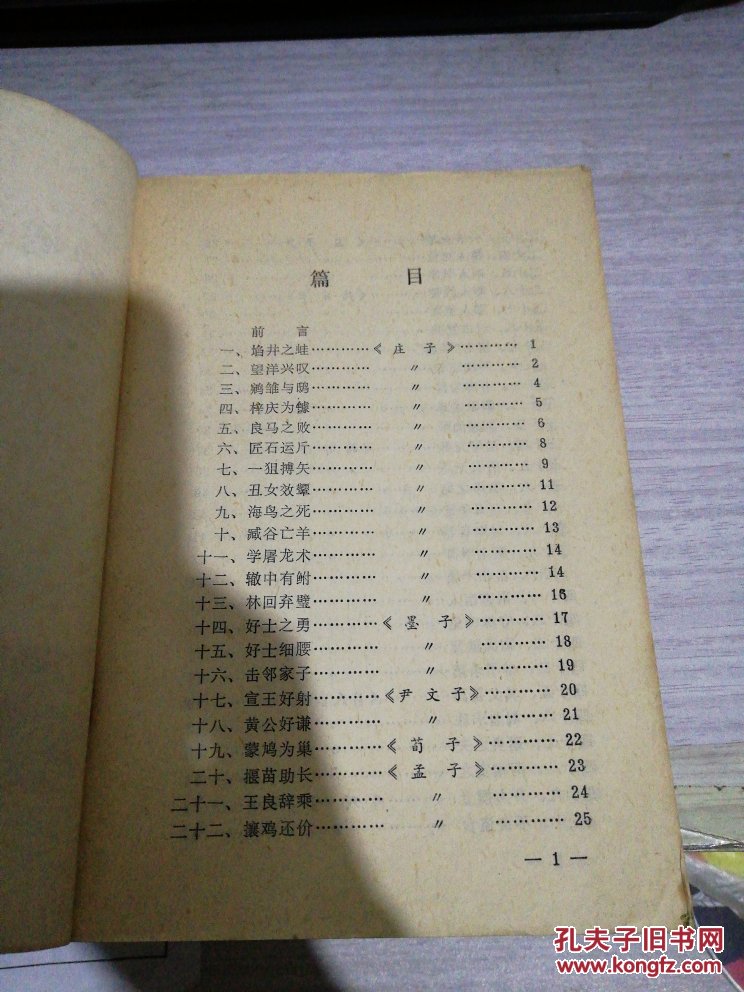 篇 目
前 言
一、埳井之蛙…………《庄 子》………… 1
二、望洋兴叹………… 〃 ………… 2
三、鹓雏与鸱………… 〃 ………… 4
四、梓庆为鐻………… 〃 ………… 5
五、良马之败………… 〃 ………… 6
六、匠石运斤………… 〃 ………… 8
七、一狙搏矢………… 〃 ………… 9
八、丑女效颦………… 〃 ………… 11
九、海鸟之死………… 〃 ………… 12
十、臧谷亡羊………… 〃 ………… 13
十一、学屠龙术………… 〃 ………… 14
十二、辙中有鲋………… 〃 ………… 14
十三、林回弃璧………… 〃 ………… 16
十四、好士之勇…………《墨 子》………… 17
十五、好士细腰………… 〃 ………… 18
十六、击邻家子………… 〃 ………… 19
十七、宣王好射…………《尹 文 子》………… 20
十八、黄公好谦………… 〃 ………… 21
十九、蒙鸠为巢…………《荀 子》………… 22
二十、揠苗助长…………《孟 子》………… 23
二十一、王良辞乘………… 〃 ………… 24
二十二、攘鸡还价………… 〃 ………… 25
— 1 —
孔夫子旧书网
www.kongfz.com